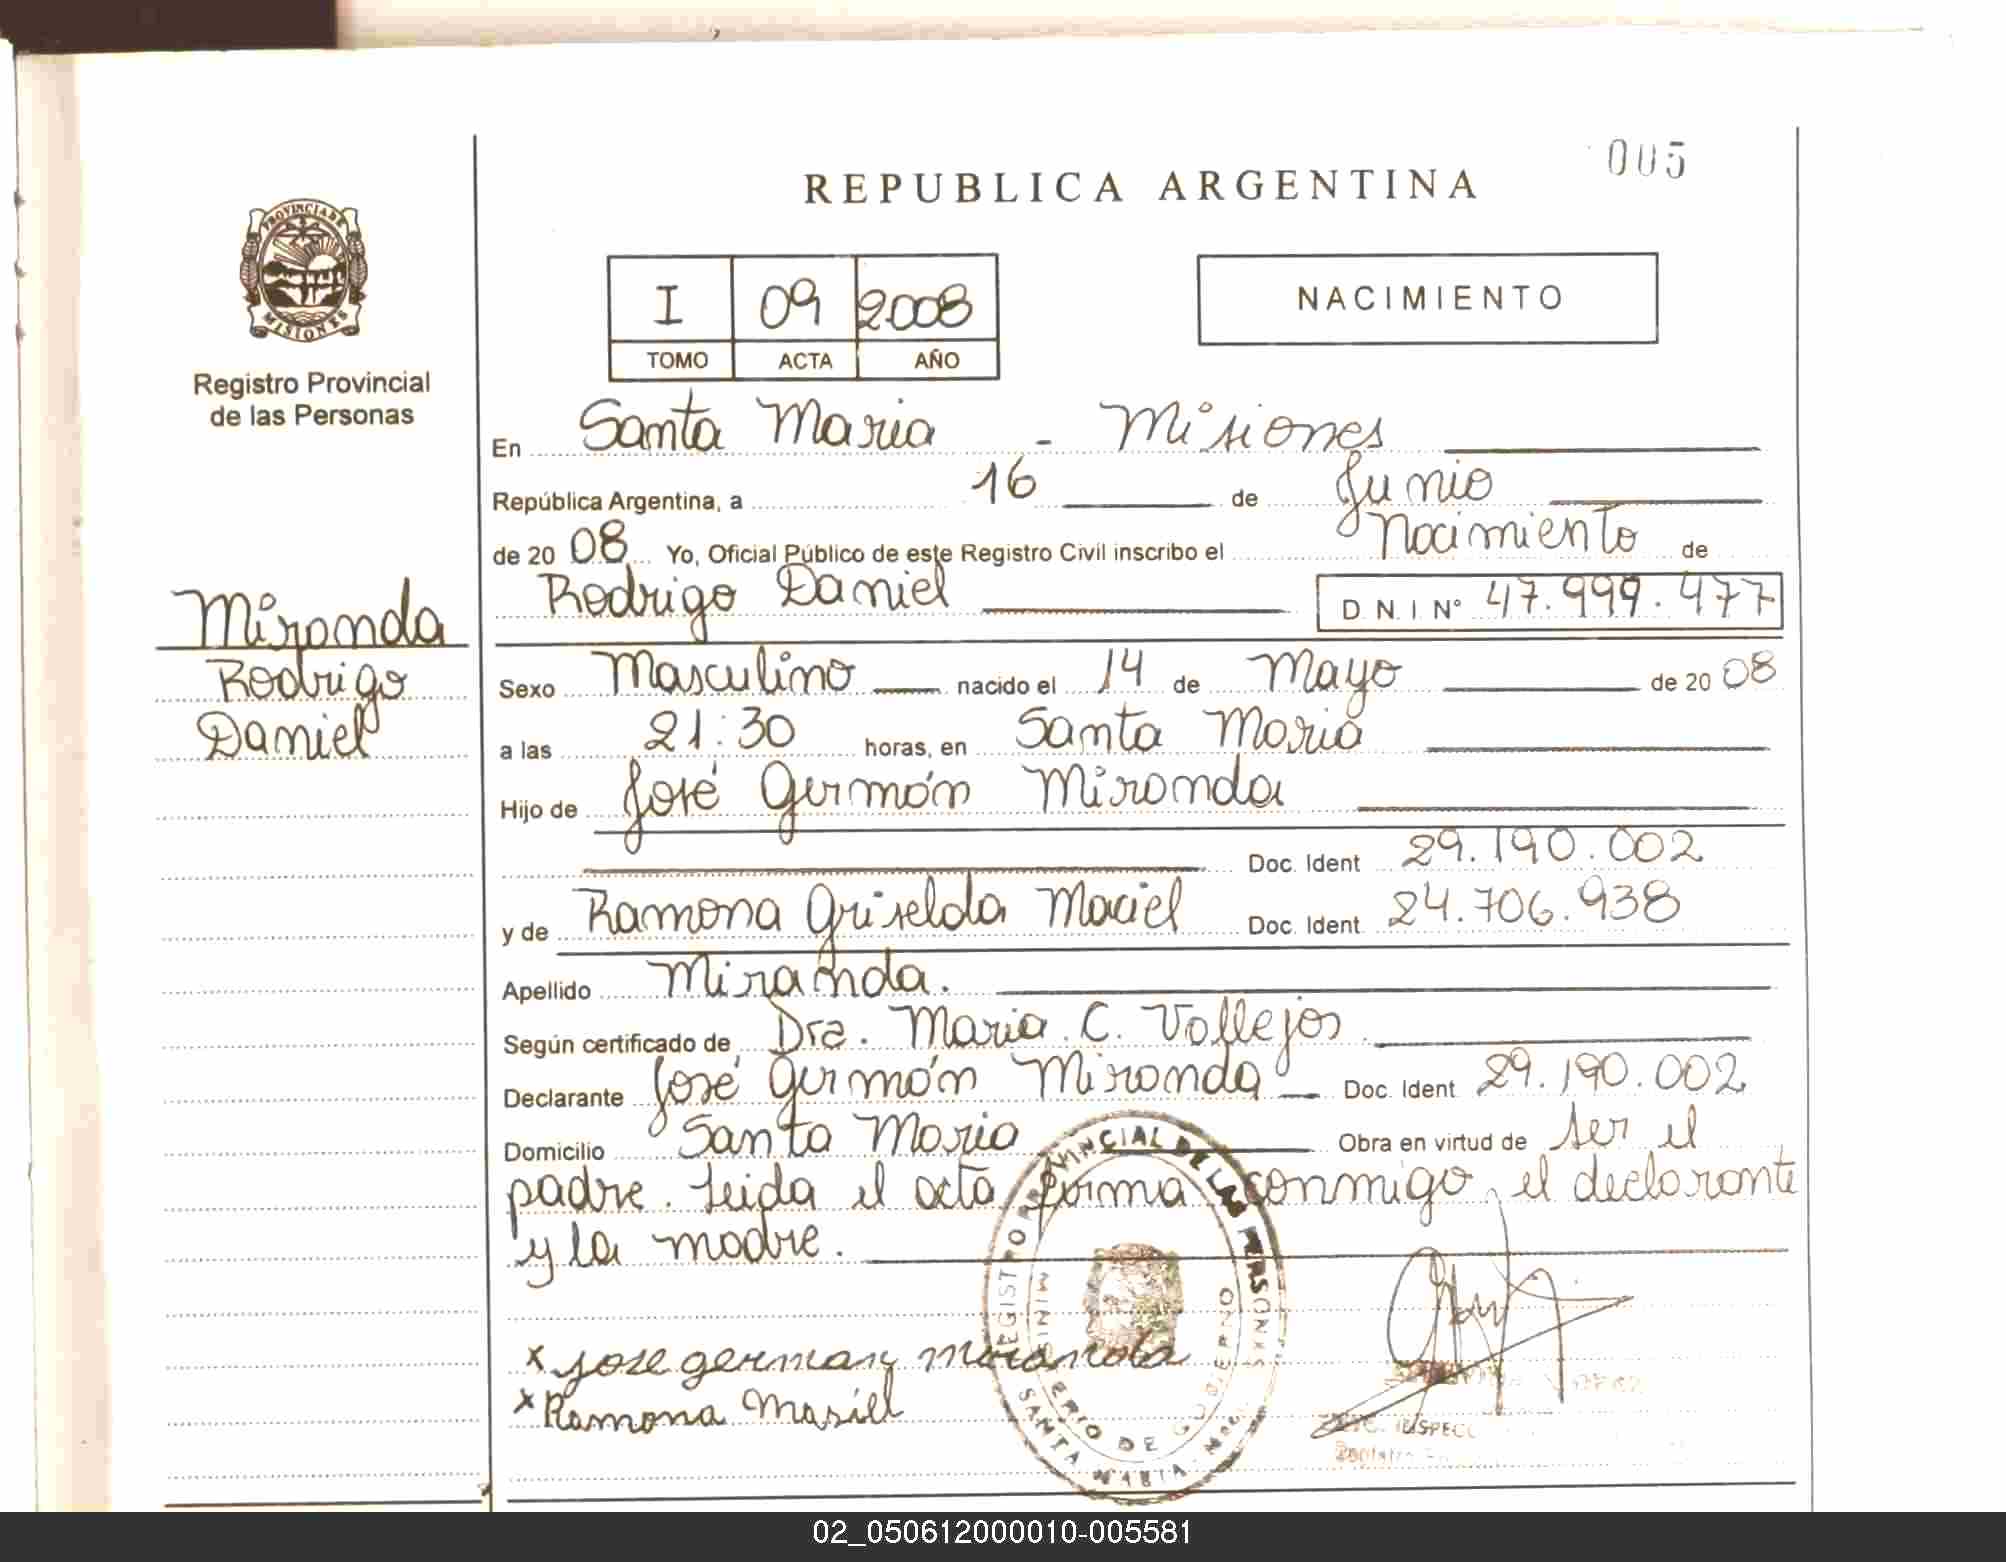 005
REPUBLICA ARGENTINA
PROVINCIA DE
MISIONES
Registro Provincial
de las Personas
I 09 2008
TOMO ACTA AÑO
NACIMIENTO
En Santa Maria - Misiones
República Argentina, a 16 de Junio
de 2008 Yo, Oficial Público de este Registro Civil inscribo el Nacimiento de
Rodrigo Daniel D.N.I Nº 47.999.477
Miranda
Rodrigo
Daniel
Sexo Masculino nacido el 14 de Mayo de 2008
a las 21:30 horas, en Santa Maria
Hijo de José Germán Miranda
Doc. Ident 29.190.002
y de Ramona Griselda Maciel Doc. Ident 24.706.938
Apellido Miranda.
Según certificado de Dra. Maria C. Vallejos
Declarante José Germán Miranda Doc. Ident 29.190.002
Domicilio Santa Maria Obra en virtud de ser el
padre. Leida el acta firma conmigo, el declarante
y la madre.
REGISTRO PROVINCIAL DE LAS PERSONAS
MINISTERIO DE GOBIERNO
SANTA MARIA
x jose german miranda
x Ramona Masiel
02_050612000010-005581